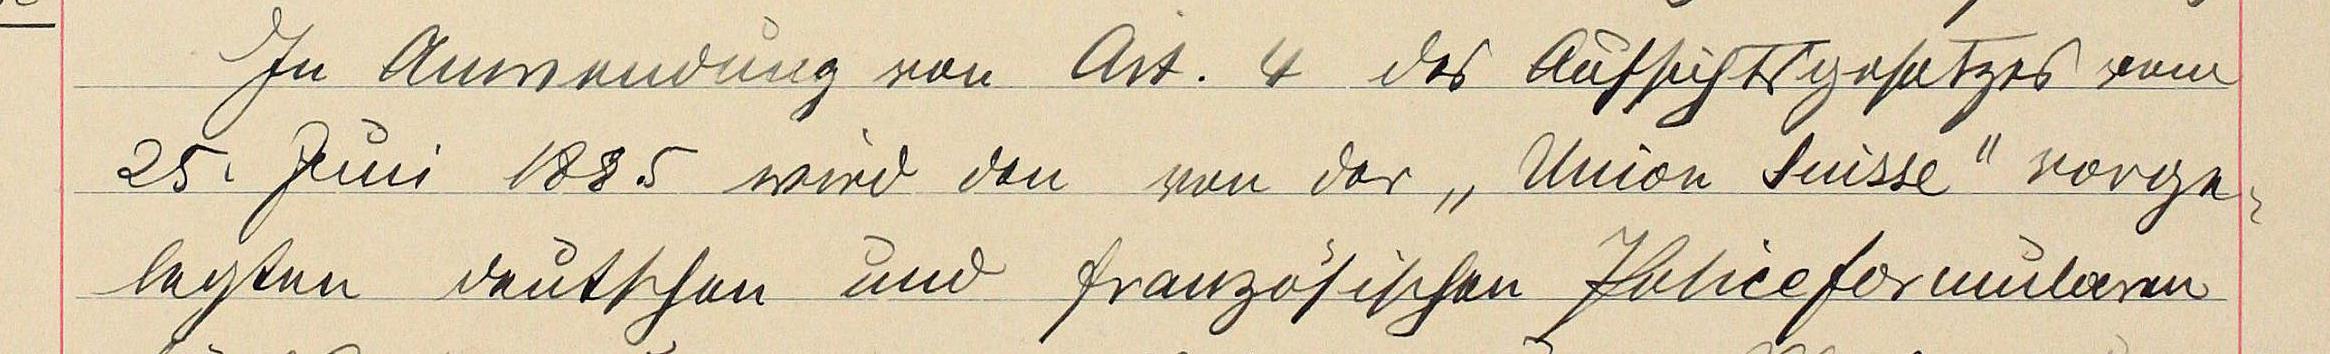 In Anwendung von Art. 4 des Aufsichtsgesetzes vom
25. Juni 1885 wird den von der „Union Suisse" vorge-
legten deutschen und französischen Policeformularen